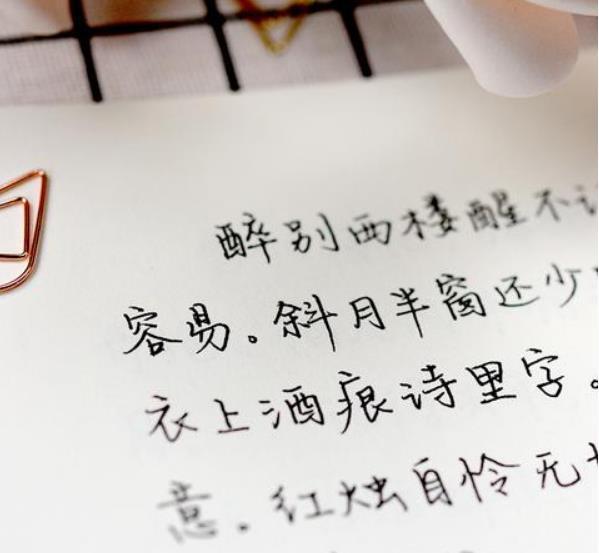 醉别西楼醒不记
容易。斜月半窗还少
衣上酒痕诗里字。
意。红烛自怜无